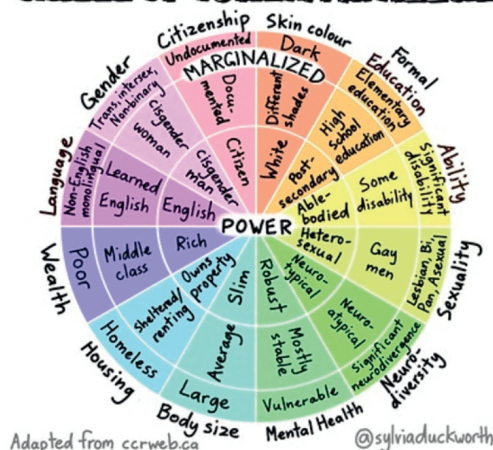 Citizenship
Undocumented
Documented
Citizen
Skin colour
Dark
Different shades
White
Formal Education
Elementary education
High School education
Post-secondary
Ability
Significant disability
Some disability
Able-bodied
Sexuality
Lesbian, Bi, Pan, Asexual
Gay men
Heterosexual
Neurodiversity
Significant neurodivergence
Neuroatypical
Neurotypical
Mental Health
Vulnerable
Mostly stable
Robust
Body size
Large
Average
Slim
Housing
Homeless
Sheltered/renting
Owns property
Wealth
Poor
Middle class
Rich
Language
Non-English monolingual
Learned English
English
Gender
Trans, intersex, Non-binary
Cisgender woman
Cisgender man
MARGINALIZED
POWER
Adapted from ccrweb.ca
@sylviaduckworth